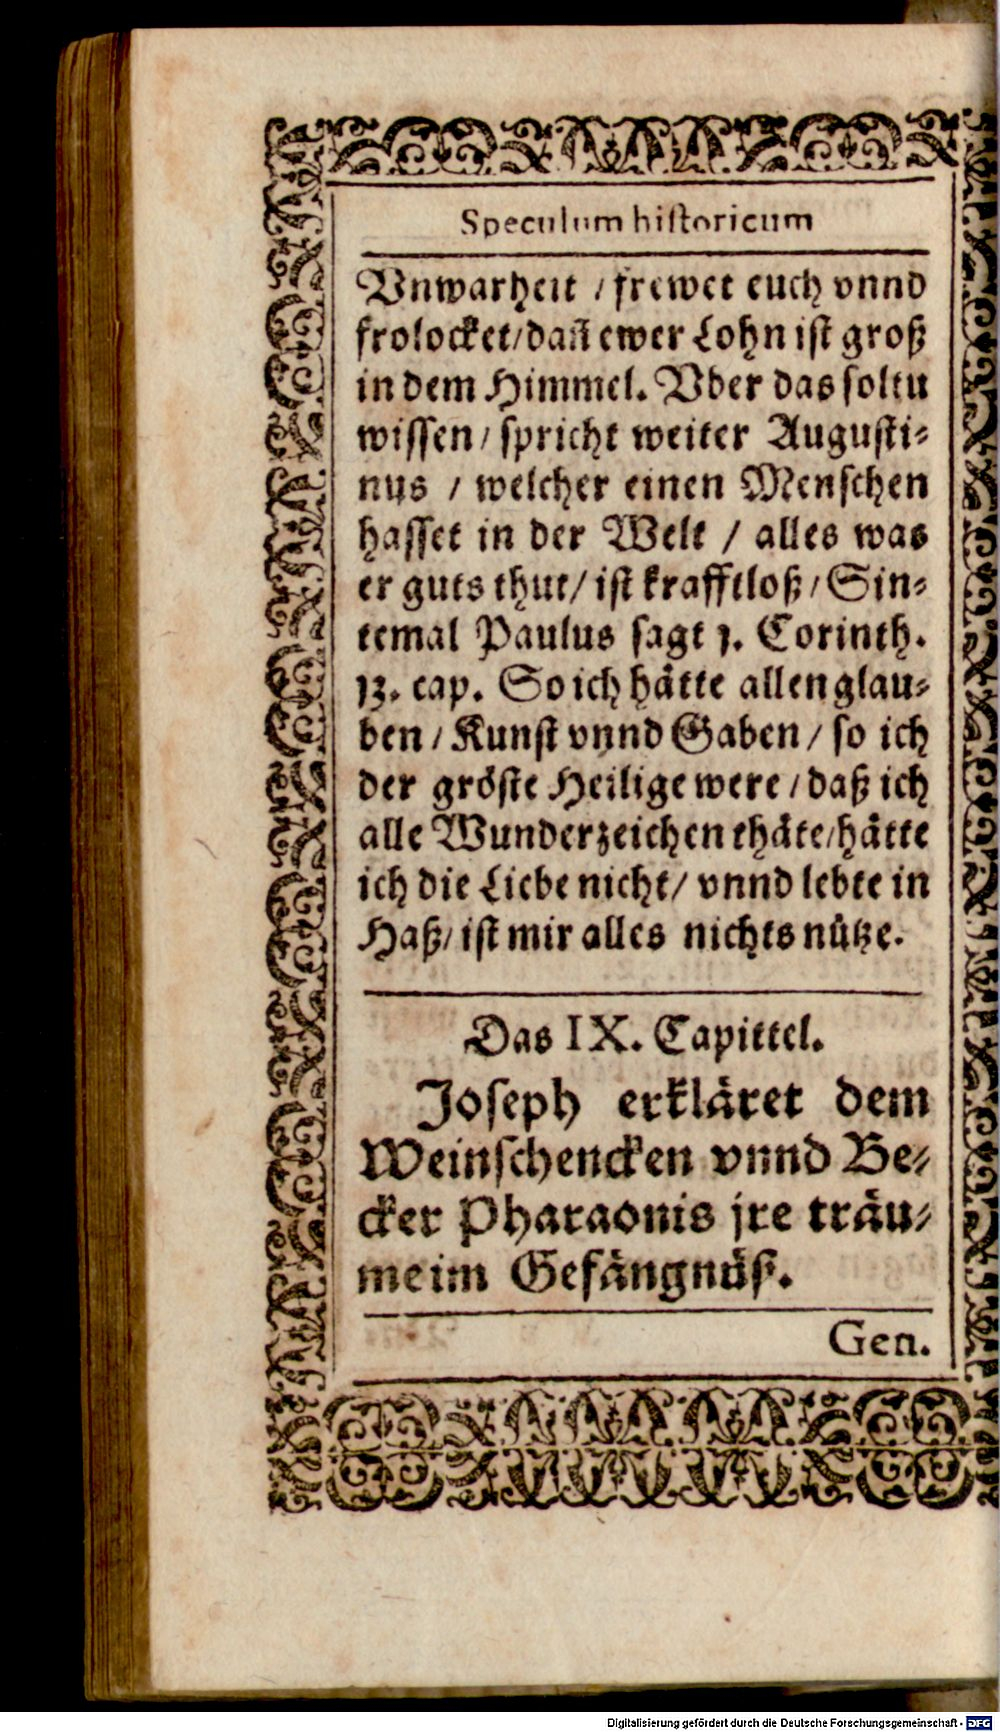 Speculum historicum
Vnwarheit / frewet euch vnnd
frolocket/dañ ewer Lohn ist groß
in dem Himmel. Vber das soltu
wissen / spricht weiter Augusti-
nus / welcher einen Menschen
hasset in der Welt / alles was
er guts thut/ ist krafftloß / Sin-
temal Paulus sagt 1. Corinth.
13. cap. So ich hätte allen glau-
ben / Kunst vnnd Gaben / so ich
der gröste Heilige were / daß ich
alle Wunderzeichen thäte/hätte
ich die Liebe nicht/ vnnd lebte in
Haß/ ist mir alles nichts nütze.
Das IX. Capittel.
Joseph erkläret dem
Weinschencken vnnd Be-
cker Pharaonis jre träu-
me im Gefängnüß.
Gen.
Digitalisierung gefördert durch die Deutsche Forschungsgemeinschaft - DFG